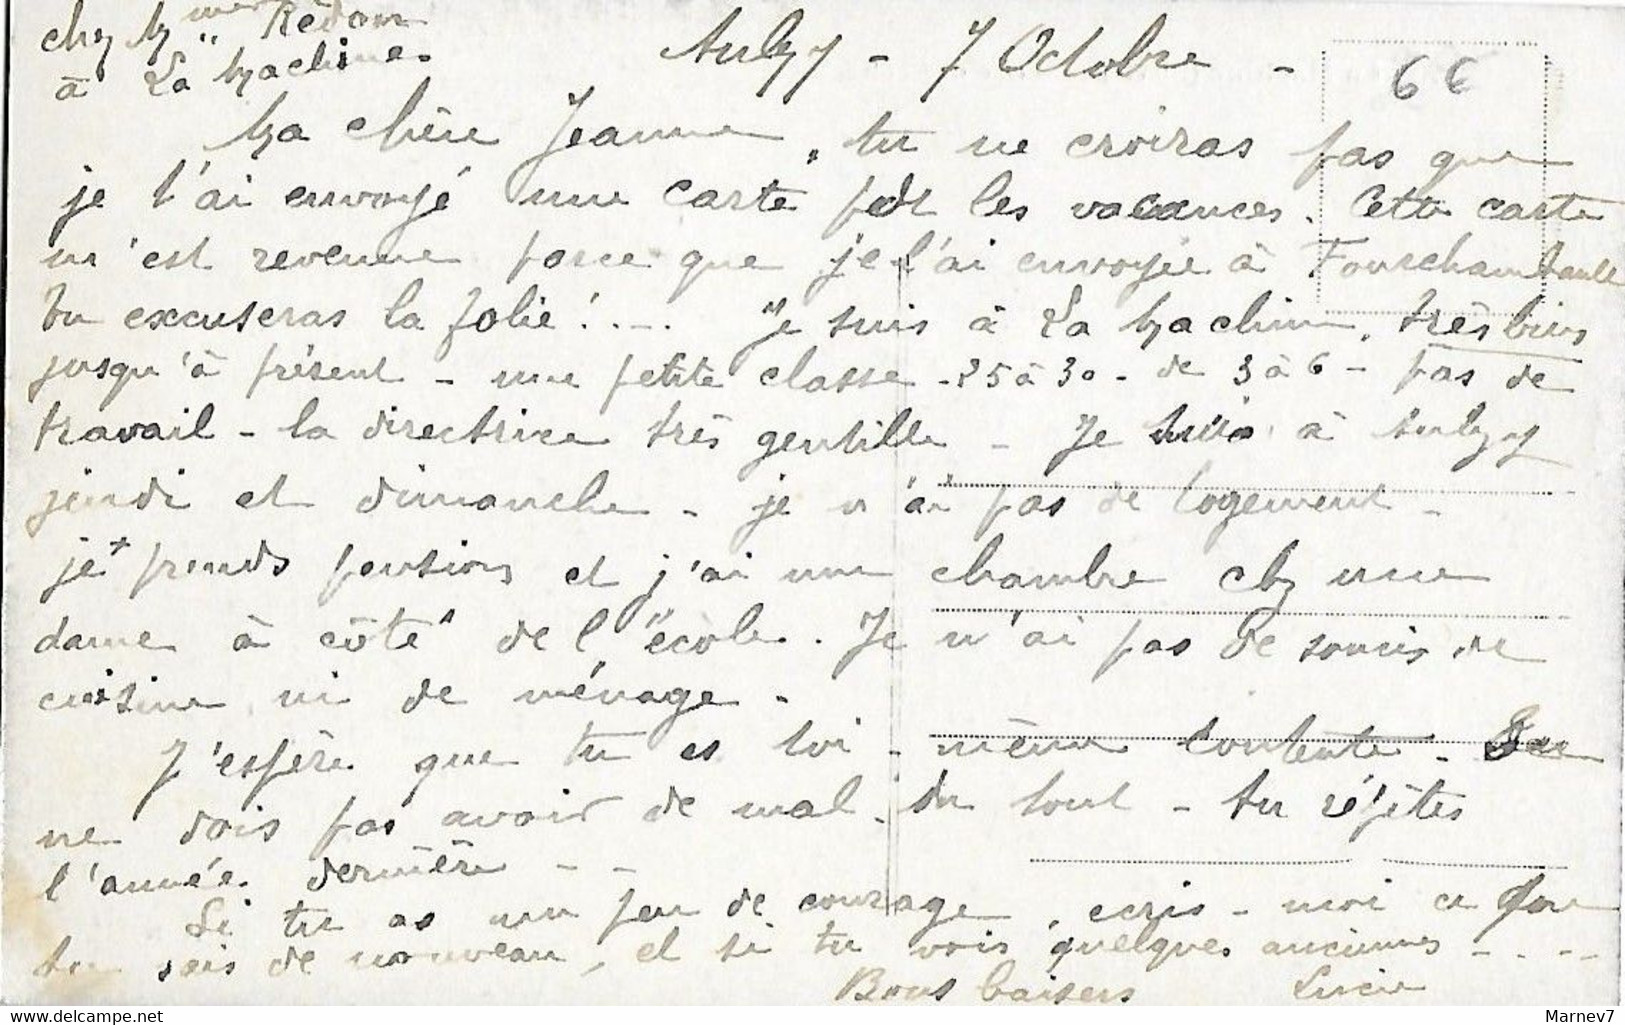 chez Mme Rédon
à La Machine.
Aulzy - 7 Octobre -
6€
Ma chère Jeanne, tu ne croiras pas que
je t'ai envoyé une carte pdt les vacances. Cette carte
m'est revenue parce que je l'ai envoyée à Fourchambault
tu excuseras la folie!.... Je suis à La Machine, très bien
jusqu'à présent - une petite classe - 25 à 30 - de 3 à 6 - pas de
travail - la directrice très gentille - Je suis à Aulzy
jeudi et dimanche - je n'ai pas de logement -
je prends pension et j'ai une chambre chez une
dame à côté de l'école. Je n'ai pas de soucis de
cuisine ni de ménage -
J'espère que tu es toi-même contente. Tu
ne dois pas avoir de mal du tout - tu répètes
l'année dernière - -
Si tu as un peu de courage, écris-moi ce que
tu sais de nouveau, et si tu vois quelques anciennes - . . .
Bons baisers Lucie
www.delcampe.net
Marnev7